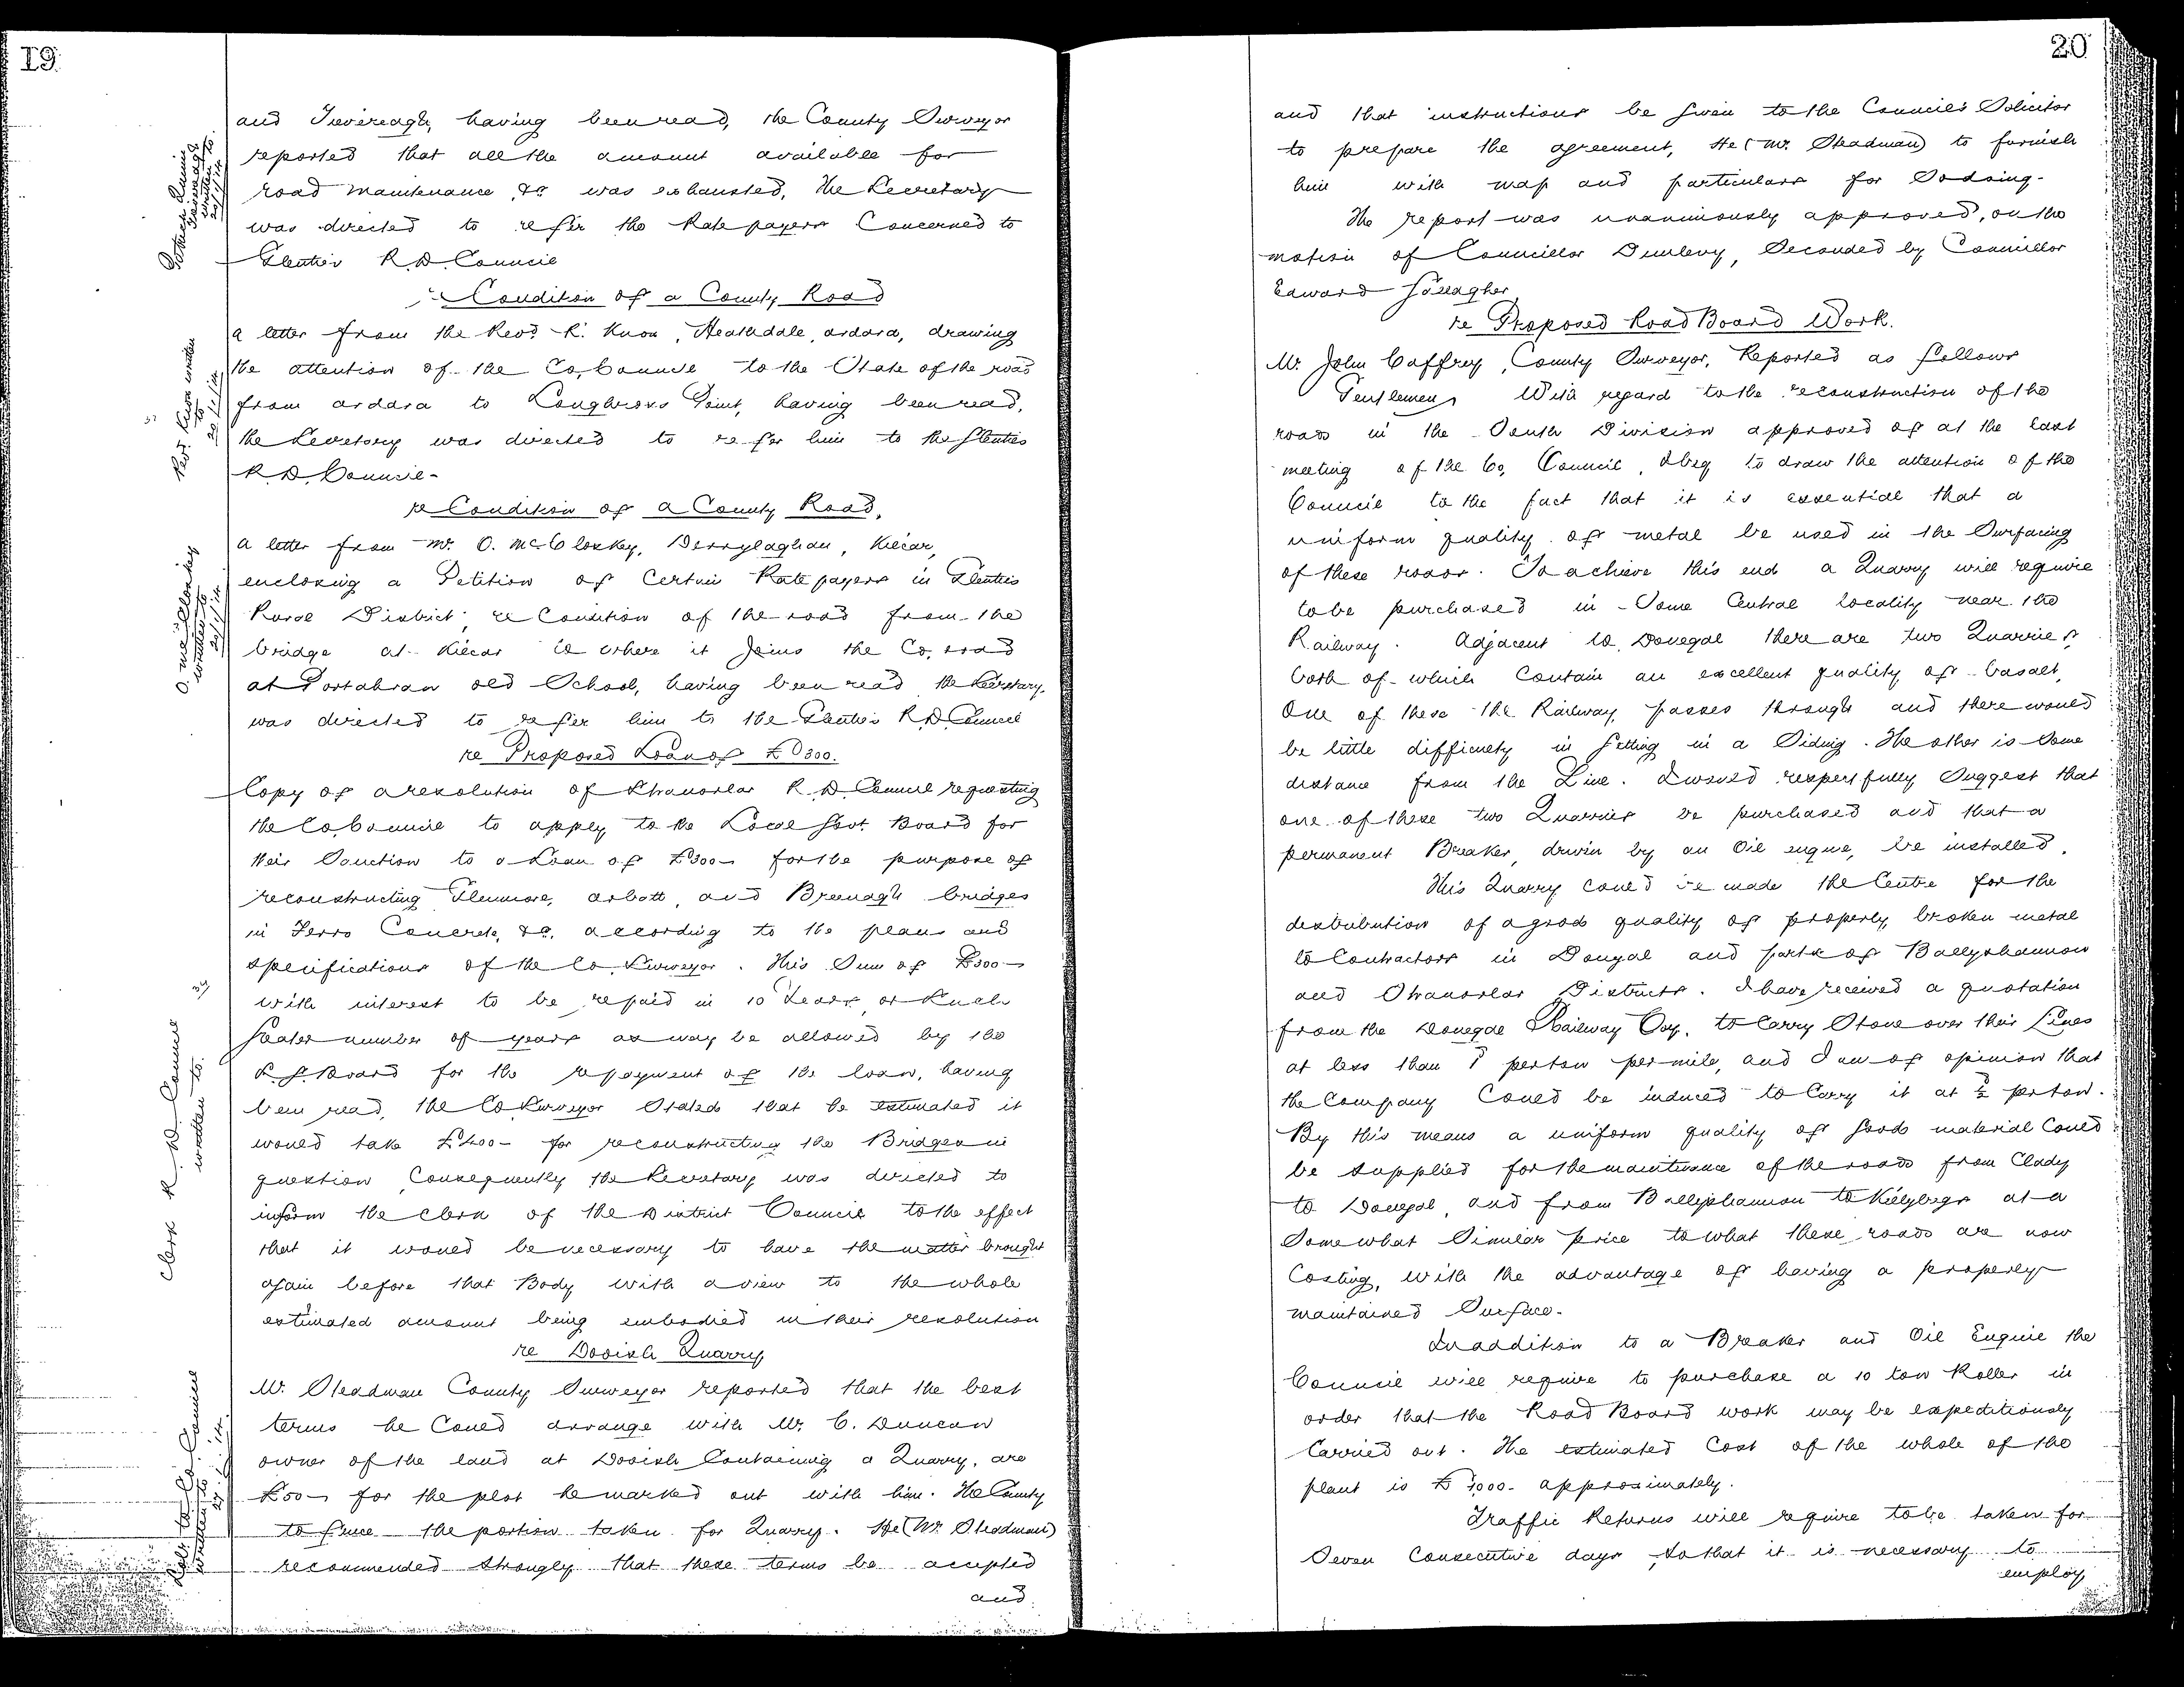 19
and Tievereagh, having been read, the County Surveyor
reported that all the amount available for
road maintenance, &c was exhausted, the Secretary
was directed to refer the Rate payers Concerned to
Glenties R.D. Council
re Condition of a County Road
a letter from the Revd. R. Knox, Heathdale, ardara, drawing
the attention of the Co, Council to the State of the road
from ardara to Loughross Point, having been read,
the Secretary was directed to refer him to the Glenties
R D Council-
re Condition of a County Road,
a letter from Mr. O. McCloskey, Derrylaghan, Kilcar,
enclosing a Petition of Certain Rate payers in Glenties
Rural District, re Condition of the road from the
bridge at Kilcar to where it Joins the Co, road
at Portahran old School, having been read the Secretary,
was directed to refer him to the Glenties R.D. Council
re Proposed Loan of £300.
Copy of a resolution of Stranorlar R.D. Council requesting
the Co, Council to apply to the Local Govt. Board for
their Sanction to a Loan of £300- for the purpose of
reconstructing Glenmore, arbatt, and Breenagh bridges
in Ferro Concrete, &c, according to the plans and
specifications of the Co, Surveyor. This Sum of £300-
with interest to be repaid in 10 Years or Such
Greater number of years as may be allowed by the
L.G. Board for the repayment of the loan, having
been read, the Co Surveyor Stated that he estimated it
would take £400- for reconstructing the Bridges in
question, Consequently the Secretary was directed to
inform the Clerk of the District Council to the effect
that it would be necessary to have the matter brought
again before that Body with a view to the whole
estimated amount being embodied in their resolution
re Dooish Quarry
Mr. Steadman County Surveyor reported that the best
terms he Could arrange with Mr. C. Duncan
owner of the land at Dooish Containing a Quarry, are
£50- for the plot he marked out with him. The County
to fence the portion taken for Quarry. He (Mr. Steadman)
recommended strongly that these terms be accepted
and
Revd. Knox written
to
20/1/14
O. McCloskey
written to
20/1/14
Clerk R. D. Council
written to.
20
and that instructions be given to the Council's Solicitor
to prepare the agreement, He (Mr. Steadman) to furnish
him with map and particulars for doing-
The report was unanimously approved, on the
motion of Councillor Dunlevy, Seconded by Councillor
Edward Gallagher
re Proposed Road Board Work.
Mr. John Caffrey, County Surveyor, Reported as follows
Gentlemen, With regard to the reconstruction of the
roads in the South Division approved of at the last
meeting of the Co, Council, I beg to draw the attention of the
Council to the fact that it is essential that a
uniform quality of metal be used in the Surfacing
of these roads. To achieve this end a Quarry will require
to be purchased in Some Central locality near the
Railway. Adjacent to Donegal there are two Quarries
both of which Contain an excellent quality of basalt,
One of these the Railway, passes through and there would
be little difficulty in Getting in a Siding. The other is Some
distance from the Line. I would respectfully Suggest that
one of these two Quarries be purchased and that a
permanent Breaker, driven by an Oil engine, be installed.
This Quarry could be made the Centre for the
distribution of a good quality of properly, broken metal
to Contractors in Donegal and parts of Ballyshannon
and Stranorlar Districts. I have received a quotation
from the Donegal Railway Coy. to Carry Stone over their Lines
at less than 1d per ton per mile, and I am of opinion that
the Company Could be induced to Carry it at ½d per ton.
By this means a uniform quality of good material Could
be supplied for the maintenance of the roads from Clady
to Donegal, and from Ballyshannon to Killybegs at a
Somewhat Similar price to what these roads are now
Costing, with the advantage of having a properly
maintained Surface-
In addition to a Breaker and Oil Engine the
Council will require to purchase a 10 ton Roller in
order that the Road Board work may be expeditiously
Carried out. The estimated Cost of the whole of the
plant is £1,000- approximately.
Traffic Returns will require to be taken for
Seven Consecutive days, so that it is necessary to
employ